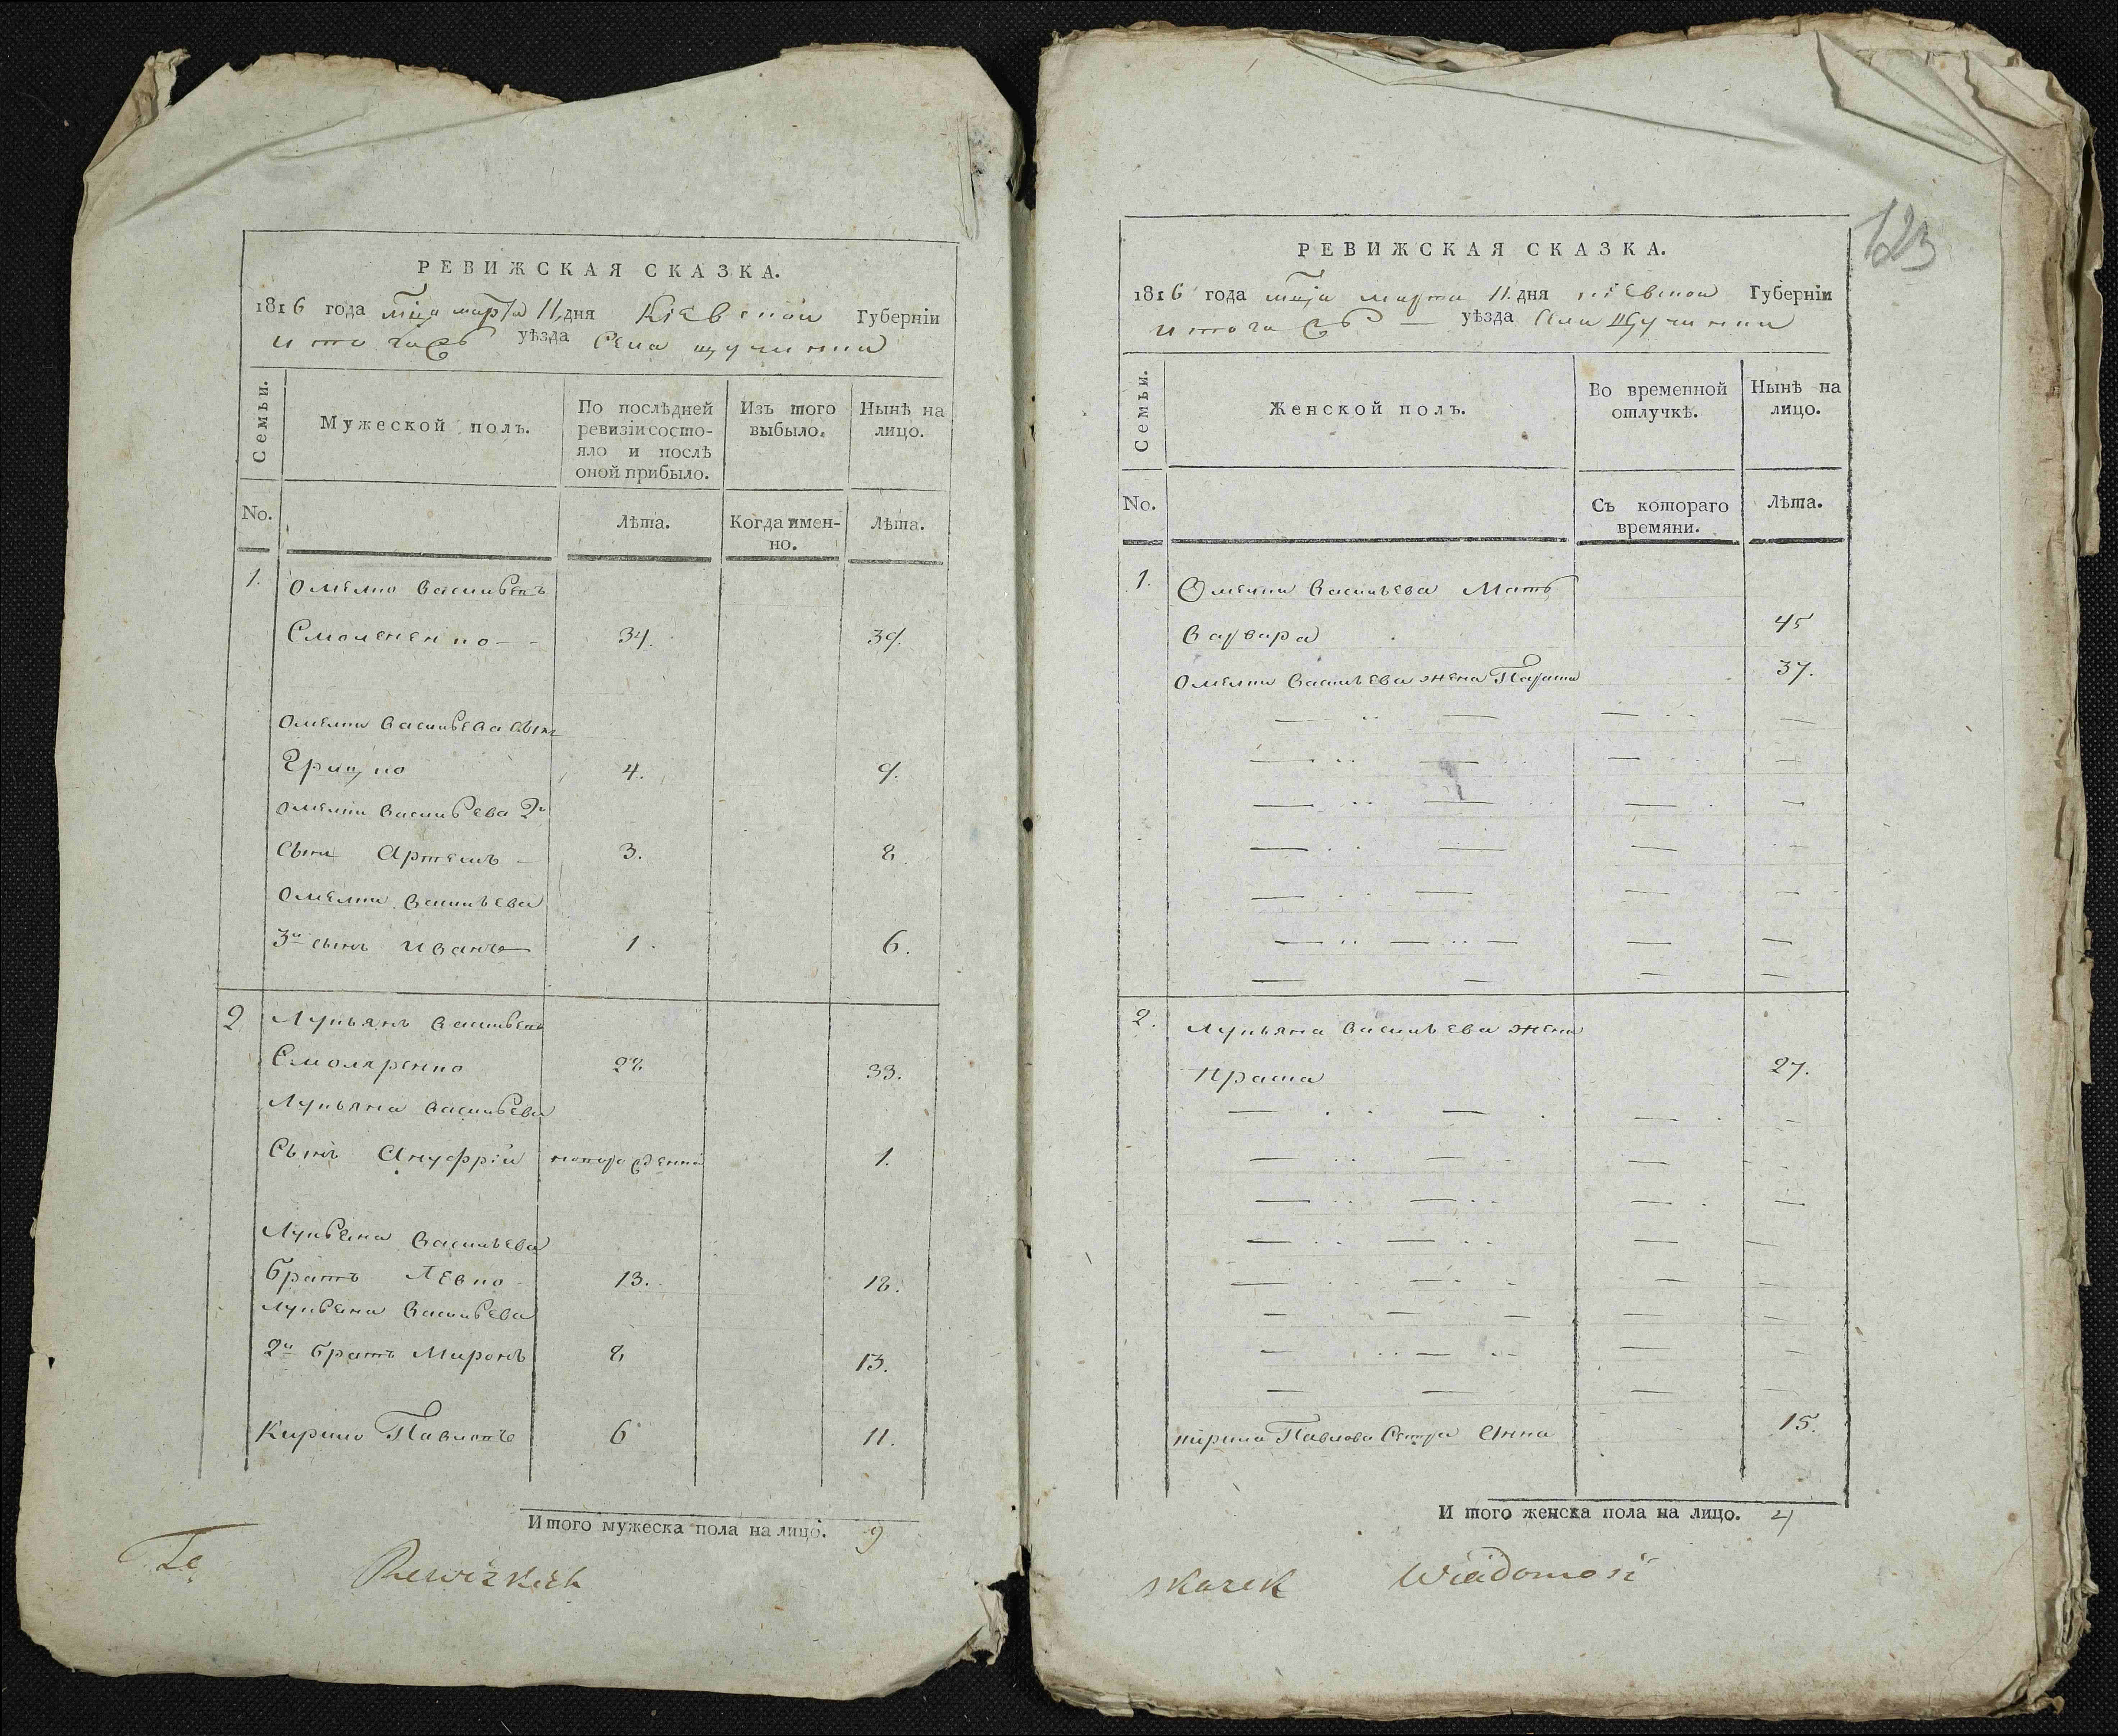 РЕВИЖСКАЯ СКАЗКА.
1816 года мца марта 11 дня Кіевской Губерніи
уѣзда Села щучинки
Семьи.
Мужеской полъ.
По послѣдней ревизіи состо-
яло и послѣ
оной прибыло.
Изъ того
выбыло.
Нынѣ на
лицо.
No.
Лѣта.
Когда имен-
но.
Лѣта.
1. Омелко Васильевъ
Смолененко 34. 39.
Омелки Васильева сынъ
Грицко 4. 9.
Омелки Васильева 2й
Сынъ Артемъ 3. 8.
Омелки Васильева
3й сынъ Иванъ 1. 6.
2 Лукьянъ Васильевъ
Смоляренко 28 33.
Лукьяна Васильева
СынъАнуфрій 1.
Лукьяна Васильева
братъ Левко 13. 18.
Лукьяна Васильева
2й братъ Миронъ 8 13.
Кирило Павловъ 6 11.
Итого мужеска пола на лицо. 9
Tę Rewizkich
123
РЕВИЖСКАЯ СКАЗКА.
1816 года мца марта 11 дня Кіевской Губерніи
уѣзда Села Щучинки
Семьи.
Женской полъ.
Во временной
отлучкѣ.
Нынѣ на
лицо.
No.
Съ котораго
времяни.
Лѣта.
1. Омелки Васильева Мать
Варвара 45
Омелки Васильева жена Параска 37.
2. Лукьяна Васильева жена
27.
Кирила Павлова Сестра Анна 15.
И того женска пола на лицо. 4
skazek Wiadomość